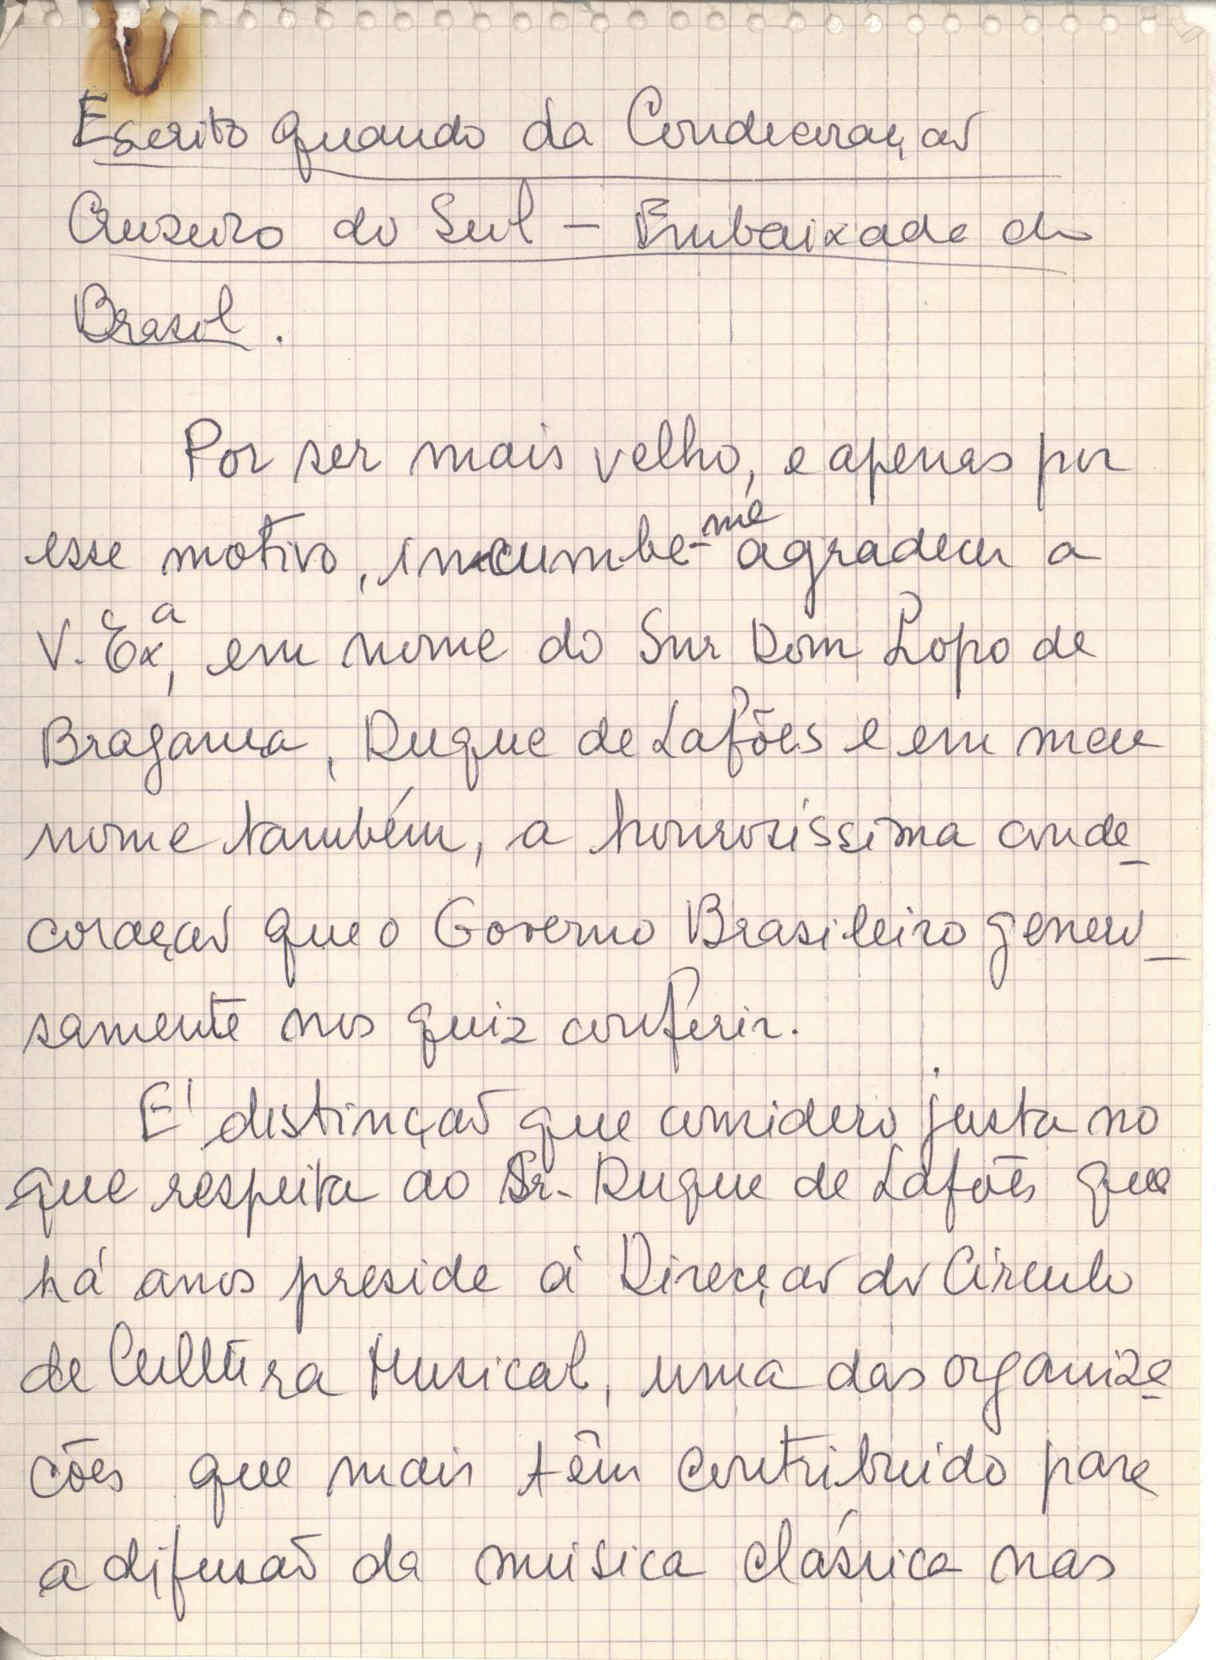 Escrito quando da Condecoração
Cruzeiro do Sul – Embaixada do
Brasil.
Por ser mais velho, e apenas por
esse motivo, incumbe-me agradecer a
V. Exª, em nome do Snr Dom Lopo de
Bragança, Duque de Lafões e em meu
nome também, a honrosíssima conde_
coração que o Governo Brasileiro genero_
samente nos quiz conferir.
É distinção que considero justa no
que respeita ao Sr. Duque de Lafões que
há anos preside á Direcção do Círculo
de Cultura Musical, uma das organiza_
ções que mais têm contribuido para
a difusão da música clássica nas